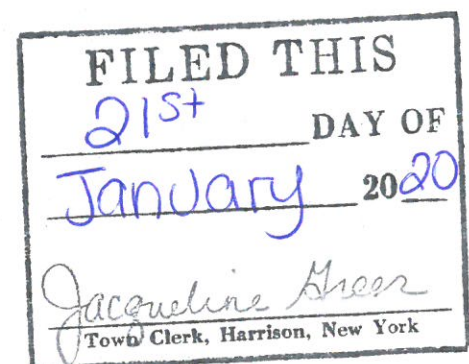 FILED THIS
21st DAY OF
January 2020
Jacqueline Greer
Town Clerk, Harrison, New York